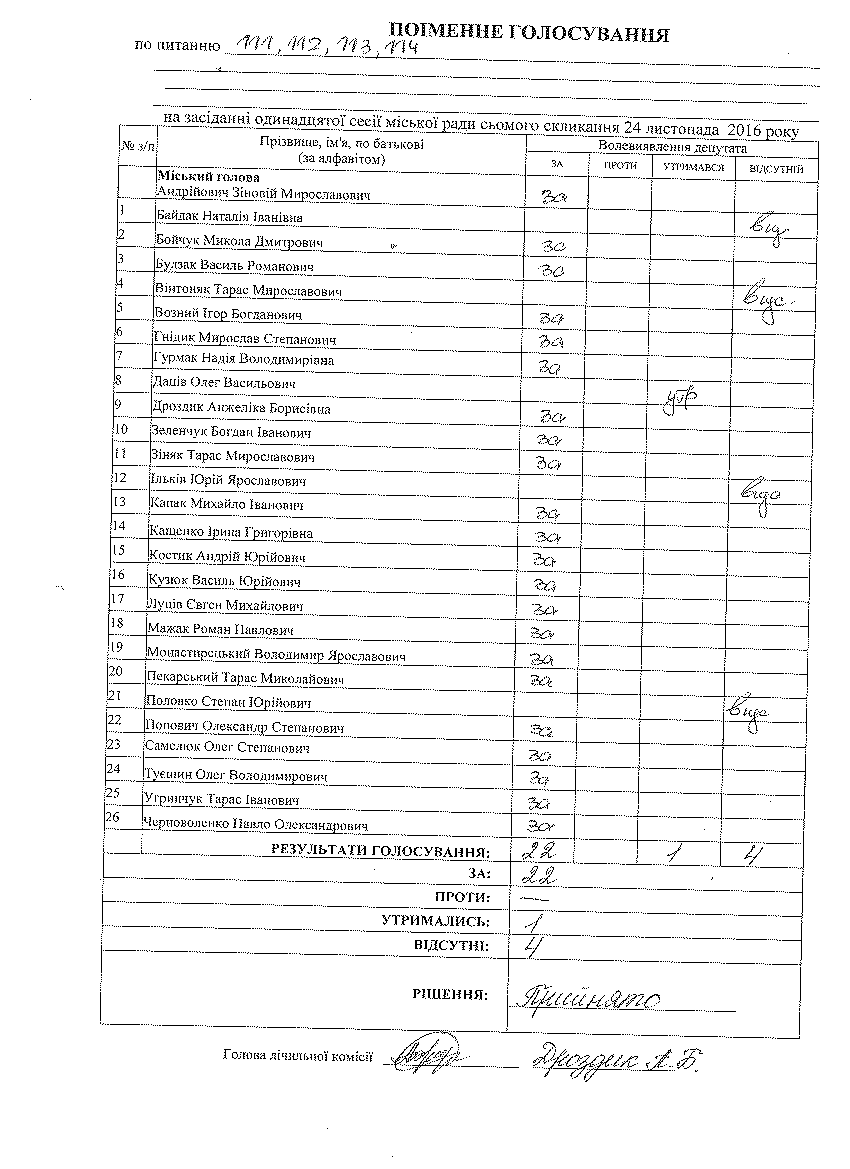 ПОІМЕННЕ ГОЛОСУВАННЯ
по питанню 111, 112, 113, 114
на засіданні одинадцятої сесії міської ради сьомого скликання 24 листопада 2016 року
№ з/п Прізвище, ім'я, по батькові (за алфавітом) Волевиявлення депутата
ЗА ПРОТИ УТРИМАВСЯ ВІДСУТНІЙ
Міський голова
Андрійович Зіновій Мирославович за
1 Байдак Наталія Іванівна від
2 Бойчук Микола Дмитрович за
3 Булзак Василь Романович за
4 Вінтоняк Тарас Мирославович відс
5 Возний Ігор Богданович за
6 Гнідик Мирослав Степанович за
7 Гурмак Надія Володимирівна за
8 Даців Олег Васильович утр
9 Дроздик Анжеліка Борисівна за
10 Зеленчук Богдан Іванович за
11 Зіняк Тарас Мирославович за
12 Ільків Юрій Ярославович відс
13 Капак Михайло Іванович за
14 Кащенко Ірина Григорівна за
15 Костик Андрій Юрійович за
16 Кузюк Василь Юрійович за
17 Луців Євген Михайлович за
18 Мажак Роман Павлович за
19 Монастирецький Володимир Ярославович за
20 Пекарський Тарас Миколайович за
21 Половко Степан Юрійович відс
22 Попович Олександр Степанович за
23 Самелюк Олег Степанович за
24 Туєшин Олег Володимирович за
25 Угринчук Тарас Іванович за
26 Черноволенко Павло Олександрович за
РЕЗУЛЬТАТИ ГОЛОСУВАННЯ: 22 1 4
ЗА: 22
ПРОТИ: —
УТРИМАЛИСЬ: 1
ВІДСУТНІ: 4
РІШЕННЯ: Прийнято
Голова лічильної комісії Дроздик А.Б.